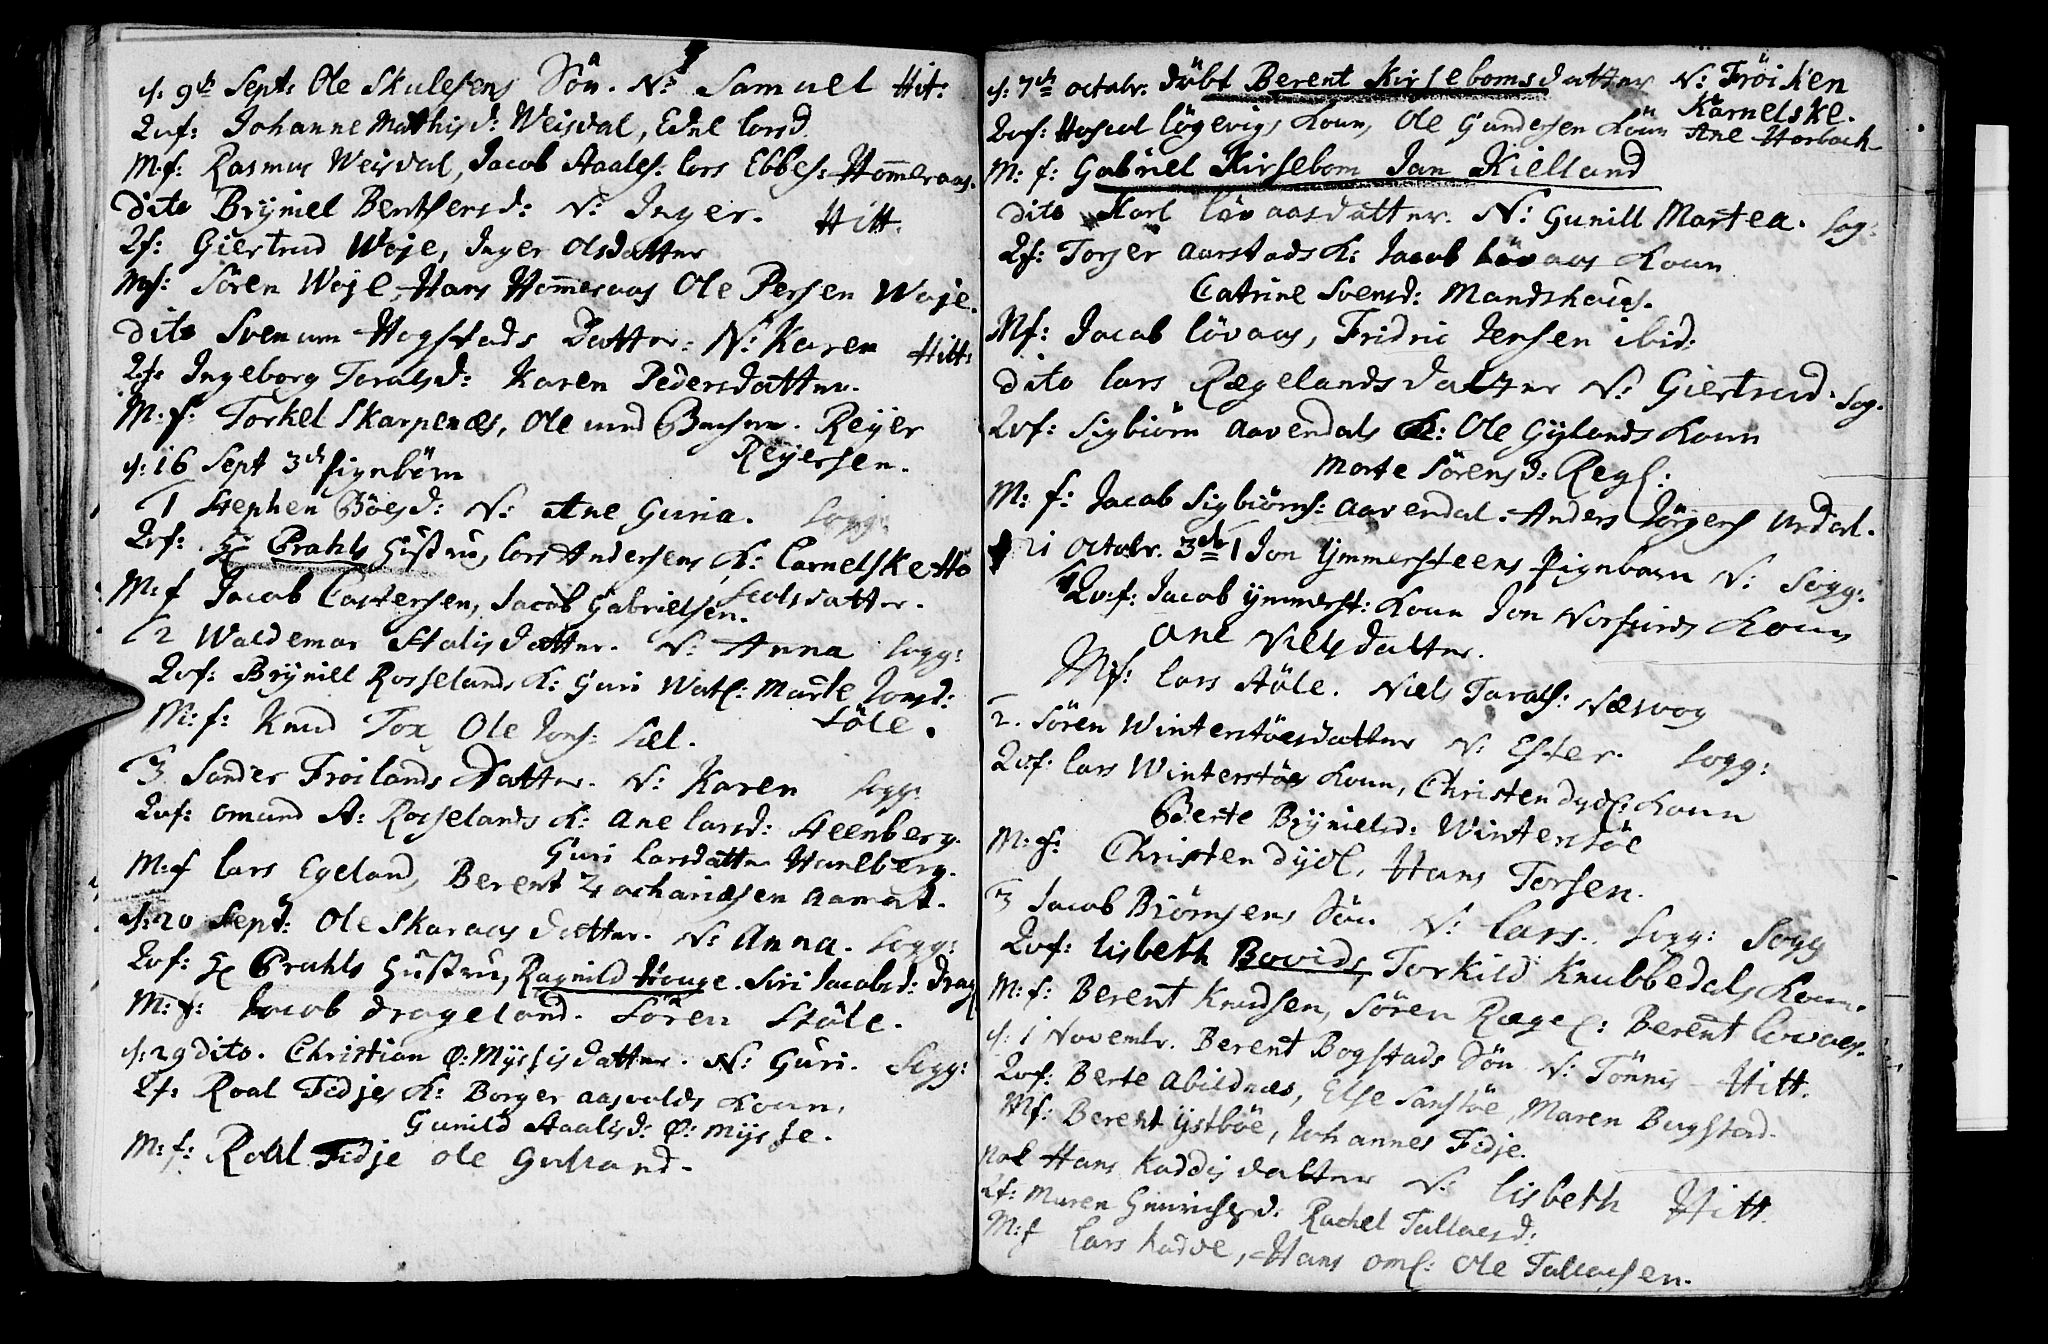 d: 9de Sept: Ole Skulesens Sön. N: Samuel Hit:
Qvf: Johanne Mathisd: Weisdal, Edel Larsd.
M.f: Rasmus Weisdal, Jacob Staales: Lars Ebbes: Homeraas.
dito Bryniel Bentsensd: N: Inger. Hitt.
Qf: Giertrud Woje, Inger Olsdatter
Mf: Sören Woje, Hans Homeraas Ole Persen Woje.
dito Svenum Hogstads Datter: N: Karen Hitt:
Qf: Ingeborg Toralsd: Karen Pedersdatter.
M.f: Torkel Skarpenæs, Ole Reyer
Reyersen.
d: 16 Sept 3de Pignbörn
1 Stephen Böesd: N: Ane Guria. Sogg:
Qvf: Hr Prahls Hustru, Lars Andersens K: Carnelske
datter.
M:f Jacob Castersen, Jacob Gabrielsen.
2 Waldemar Stalis datter. N: Anna Sogg:
Qvf: Bryniell Rosselands K: Guri Wats: Marte Jonsd:
Stöle.
M:f: Knud Tox Ole Jons: Sæl.
3 Sander Fröilands Datter. N: Karen Sogg:
Qvf: Omund A: Rosselands K: Ane Larsd: Steenberg.
Guri Larsdatter Haneberg.
M:f Lars Egeland, Berent Zachariæsen Aamot.
d: 20 Sept: Ole Skaraas datter. N: Anna. Sogg:
Qvf: Hr Prahls Hustru, Ragnild Houge. Siri Jacobsd: Drag
M:f: Jacob Drageland. Sören Stöle.
d: 29 dito. Christian Ø: Mysses datter. N: Guri. Sogg:
Qf: Roal Fedjes K: Borger Aasvalds Koun,
Gunild Staalisd: Ø: Mysse.
M:f: Roal Fedje Ole Gulland.
d: 7de octobr. döbt Berent Kirsebomsdatter N: Fröiken
Karnelske.
Qvf: Löyevigs Koun, Ole Gundersen Koun Ane Horbach
M: f: Gabriel Kirsebom Jan Kielland
dito Karl Lövaasdatter. N: Gunill Martea. Sog:
Qf: Torger Aarstads K: Jacob Lövaas Koun
Catrine Svensd: Mandshaus.
Mf: Jacob Lövaas, Fridric Jensen ibid:
dito Lars Rægelands datter N: Giertrud. Sog.
Qvf: Sigbiörn Aavendals K: Ole Gylands Koun
Marte Sörensd: Regl:
M: f: Jacob Sigbiörns: Aavendal. Anders Jörgens Urdal.
21 Octobr. 3de 1 Jon Ymmersteens Pignbarn N: Sogg:
Qv:f: Jacob Ymmerst: Koun Jon Norfiords Koun
Ane Nilsdatter.
Mf: Lars Stöle. Niels Tarals: Næsvog
2. Sören Winterstöesdatter N: Ester. Sogg:
Qvf: Lars Winterstöes Koun, Christen Dyds: Koun
Berte Brynielsd: Winterstöe
M:f: Christen Dyds, Hans Torsen.
3 Jacob Biörnsens Sön. N: Lars. Sogg: Sogg
Qvf: Lisbeth Bovids, Torkild Knubbedals Koun.
M:f: Berent Knudsen, Sören Rægel: Berent Lövaas.
d: 1 Novembr. Berent Bogstads Sön N: Tönnis Hitt.
Qvf: Berte Abildnæs, Else Sanstöe, Maren Bugstad.
Mf: Berent Ystböe, Johannes Fedje.
nok Hans Kaddes datter N: Lisbeth Hitt.
Qf: Maren Henrichsd: Rachel Tallacsd:
M:f Lars Kadde, Hans Oms: Ole Tallacsen.